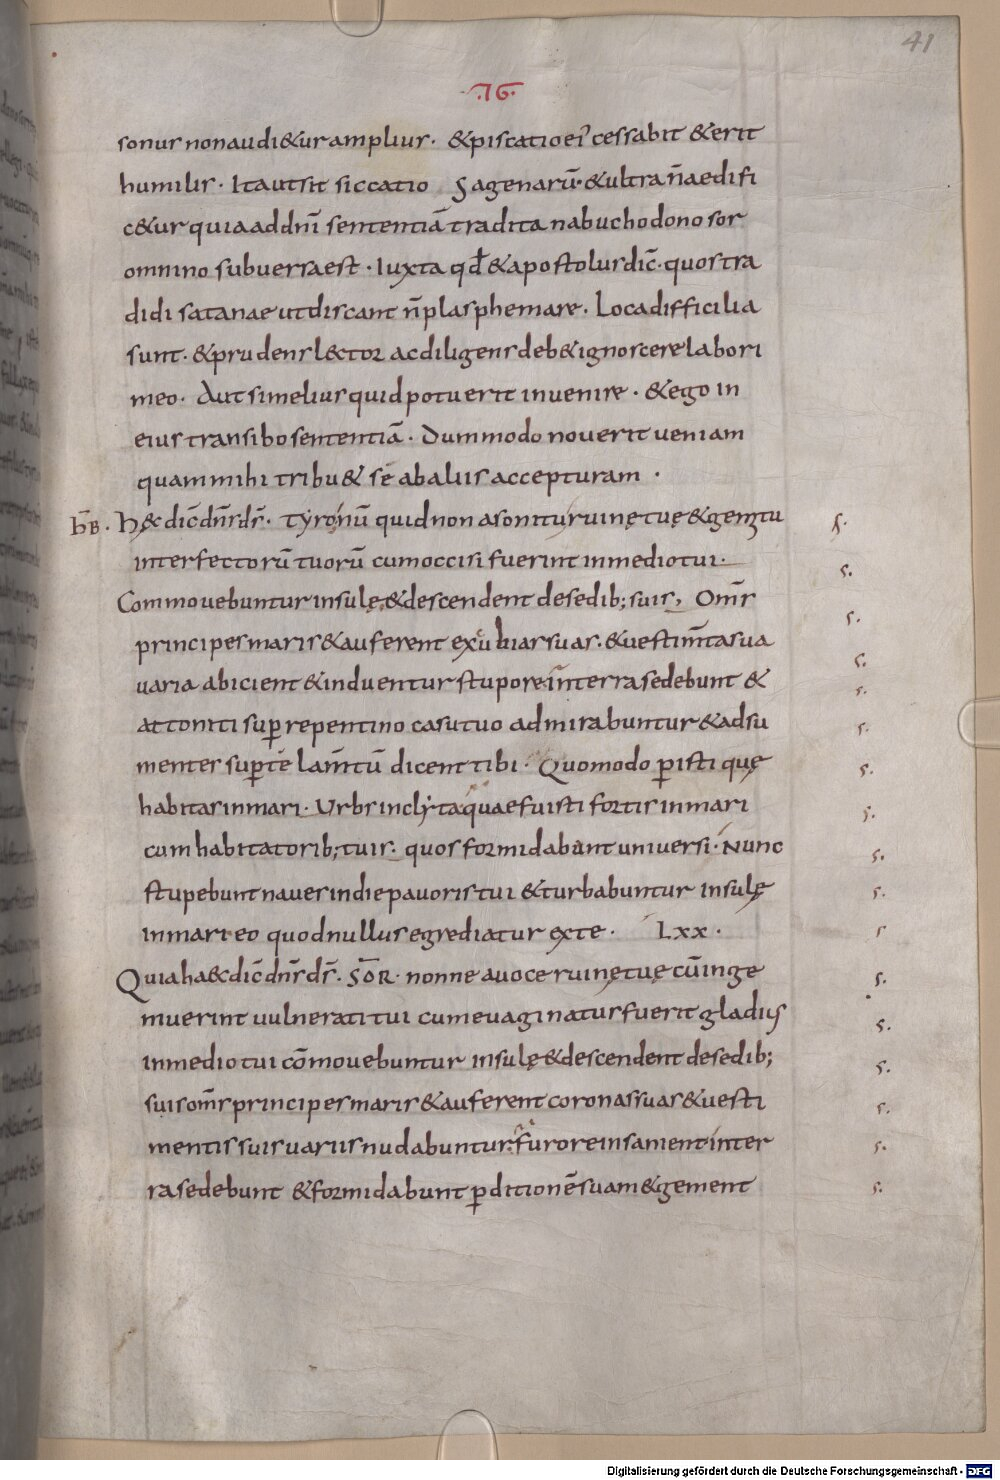 41
·76·
sonus non audi&ur amplius · & piscatio ei' cessabit & erit
humilis · Ita ut sit siccatio Sagenarū · & ultra n̄ aedifi
c&ur quia ad dn̄i sententiā tradita nabuchodonosor
omnino subuersa est · Iuxta qđ & apostolus dic̄ · quos tra
didi satanae ut discant n̄ plasphemare · Loca difficilia
sunt · & prudens l&tor ac diligens deb& ignoscere labori
meo · Aut si melius quid potuerit inuenire · & ego in
eius transibo sententiā · Dummodo nouerit ueniam
quam mihi tribu& sē ab aliis accepturam ·
h̄B · H&c dic̄ dn̄s ds̄ · tyronū quid non a sonitu ruinę tuę & gemitu
interfectorū tuorū cum occisi fuerint in medio tui ·
Commouebuntur insulę & descendent de sedib; suis, Om̄s
principes maris & auferent exubias suas · & uestim̄ta sua
uaria abicient & induentur stupore in terra sedebunt &
attoniti sup repentino casu tuo admirabuntur & adsu
menter sup te lam̄tū dicent tibi · Quomodo pisti quę
habitas in mari · Urbs inclyta quae fuisti fortis in mari
cum habitatorib; tuis · quos formidabant uniuersi · Nunc
stupebunt naues in die pauoris tui & turbabuntur insulę
in mari eo quod nullus egrediatur ex te · Lxx ·
Quia ha&c dic̄ dn̄s ds̄ · SōR · nonne a uoce ruinę tuę cū inge
muerint uulnerati tui cum euaginatus fuerit gladius
in medio tui cōmouebuntur insulę & descendent de sedib;
suis om̄s principes maris & auferent coronas suas & uesti
mentis suis uariis nudabuntur · furore insament in ter
ra sedebunt & formidabunt pditionē suam & gement
Digitalisierung gefördert durch die Deutsche Forschungsgemeinschaft · DFG